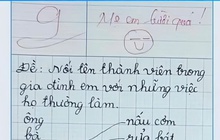 9
No em lười quá!
Đề: Nối tên thành viên trong
gia đình em với những việc
họ thường làm.
ông nấu cơm
bà rửa bát